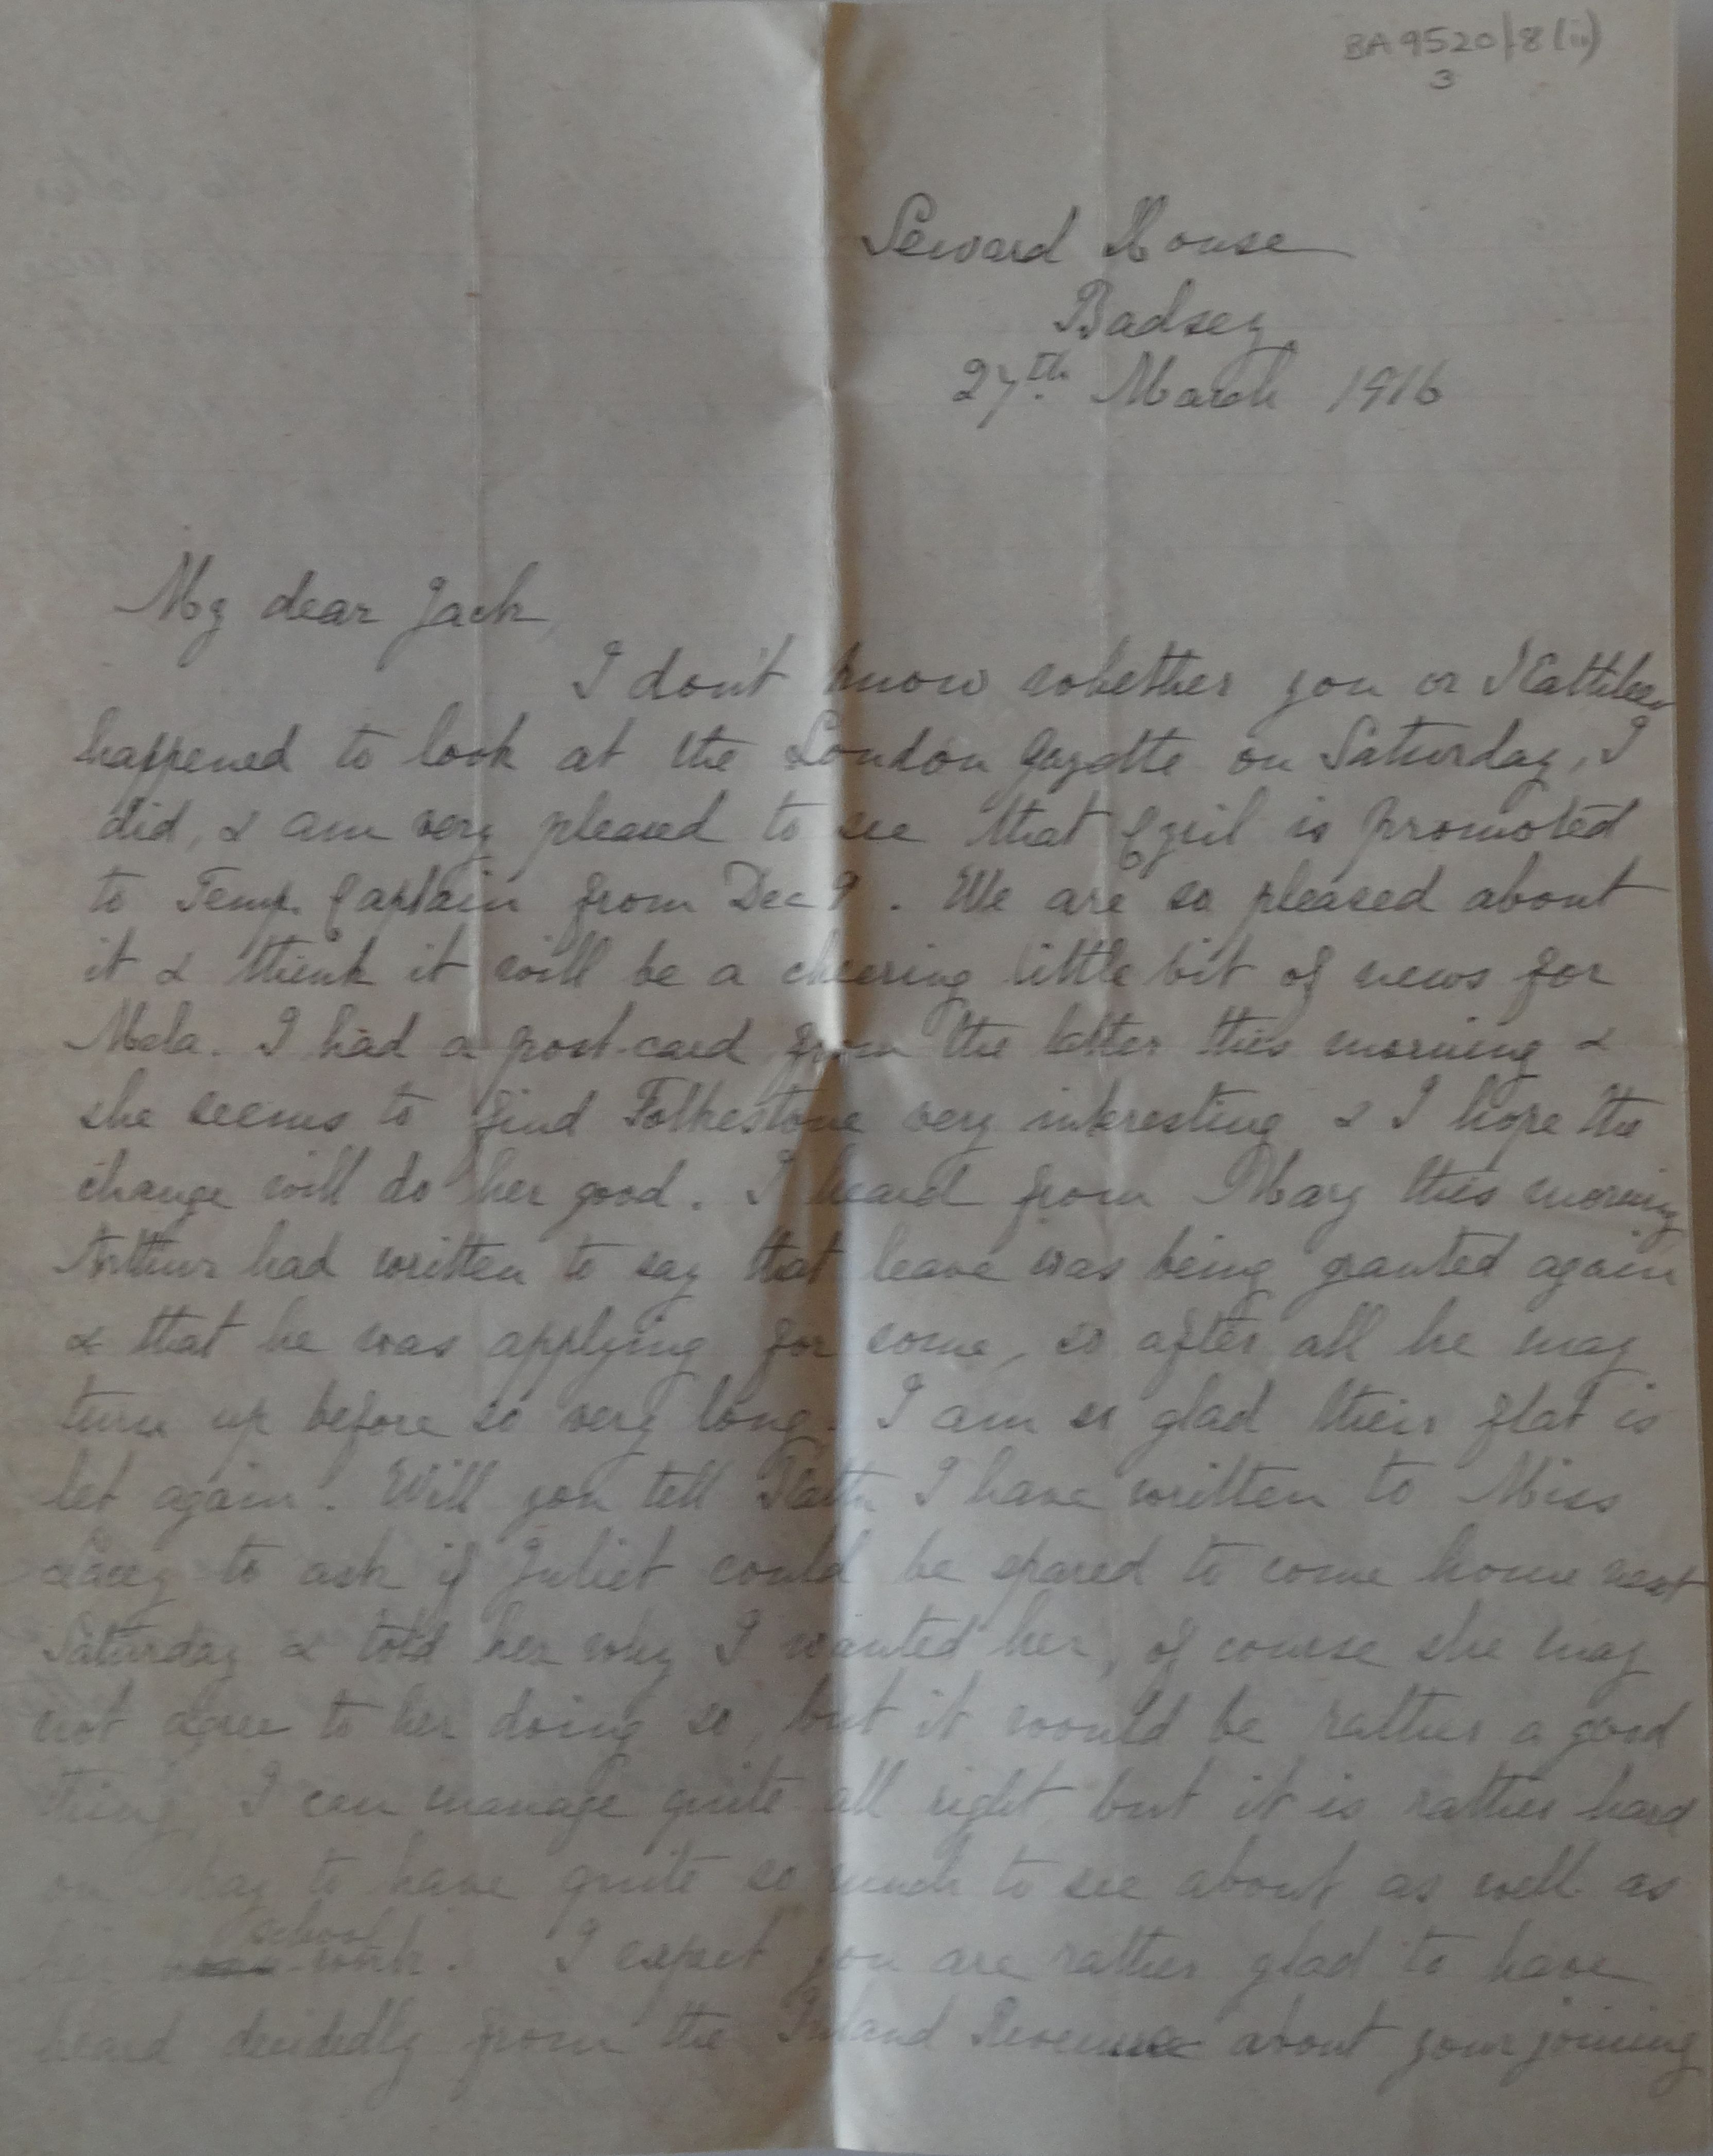 BA 9520/8(ii)
3
Seward House
Badsey
27th. March 1916
My dear Jack,
I don't know whether you or Kathleen
happened to look at the London Gazette on Saturday, I
did, & am very pleased to see that Cyril is promoted
to Temp. Captain from Dec 9. We are so pleased about
it & think it will be a cheering little bit of news for
Mela. I had a post-card from the latter this morning &
she seems to find Folkestone very interesting & I hope the
change will do her good. I heard from Mary this morning
Arthur had written to say that leave was being granted again
& that he was applying for some, so after all he may
turn up before so very long. I am so glad their flat is
let again. Will you tell I have written to Miss
to ask if Juliet could be spared to come home next
Saturday & told her why I wanted her, of course she may
not agree to her doing so, but it would be rather a good
thing, I can manage quite all right but it is rather hard
on May to have quite so much to see about as well as
school
her work. I expect you are rather glad to have
heard decidedly from the Inland Revenue about your joining